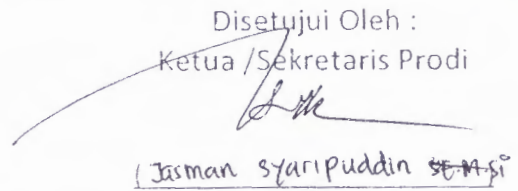 Disetujui Oleh :
Ketua /Sekretaris Prodi
(Jasman Syaripuddin SE.M.Si